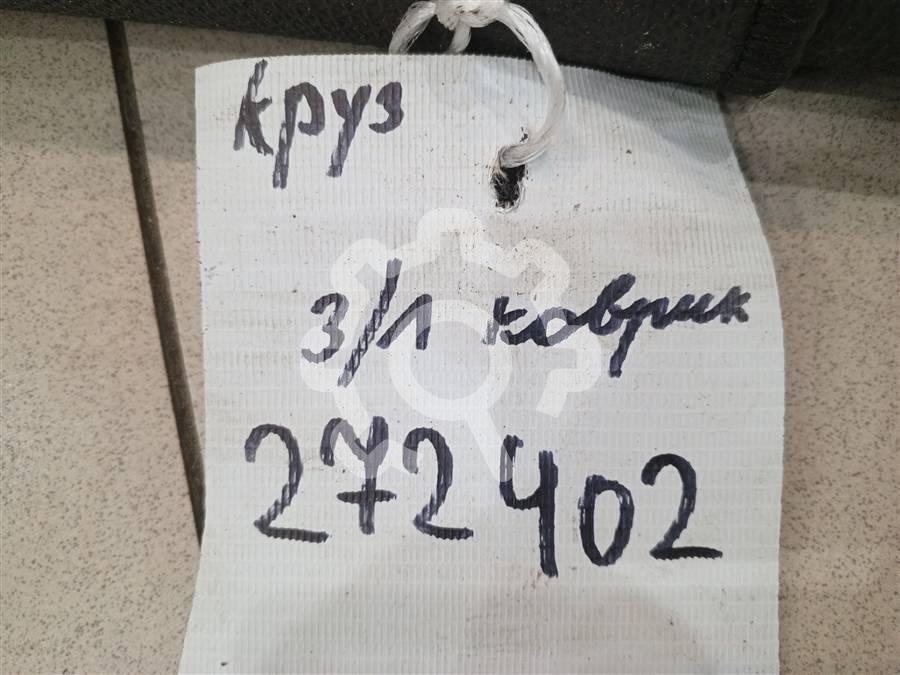 круз
з/л коврик
272402